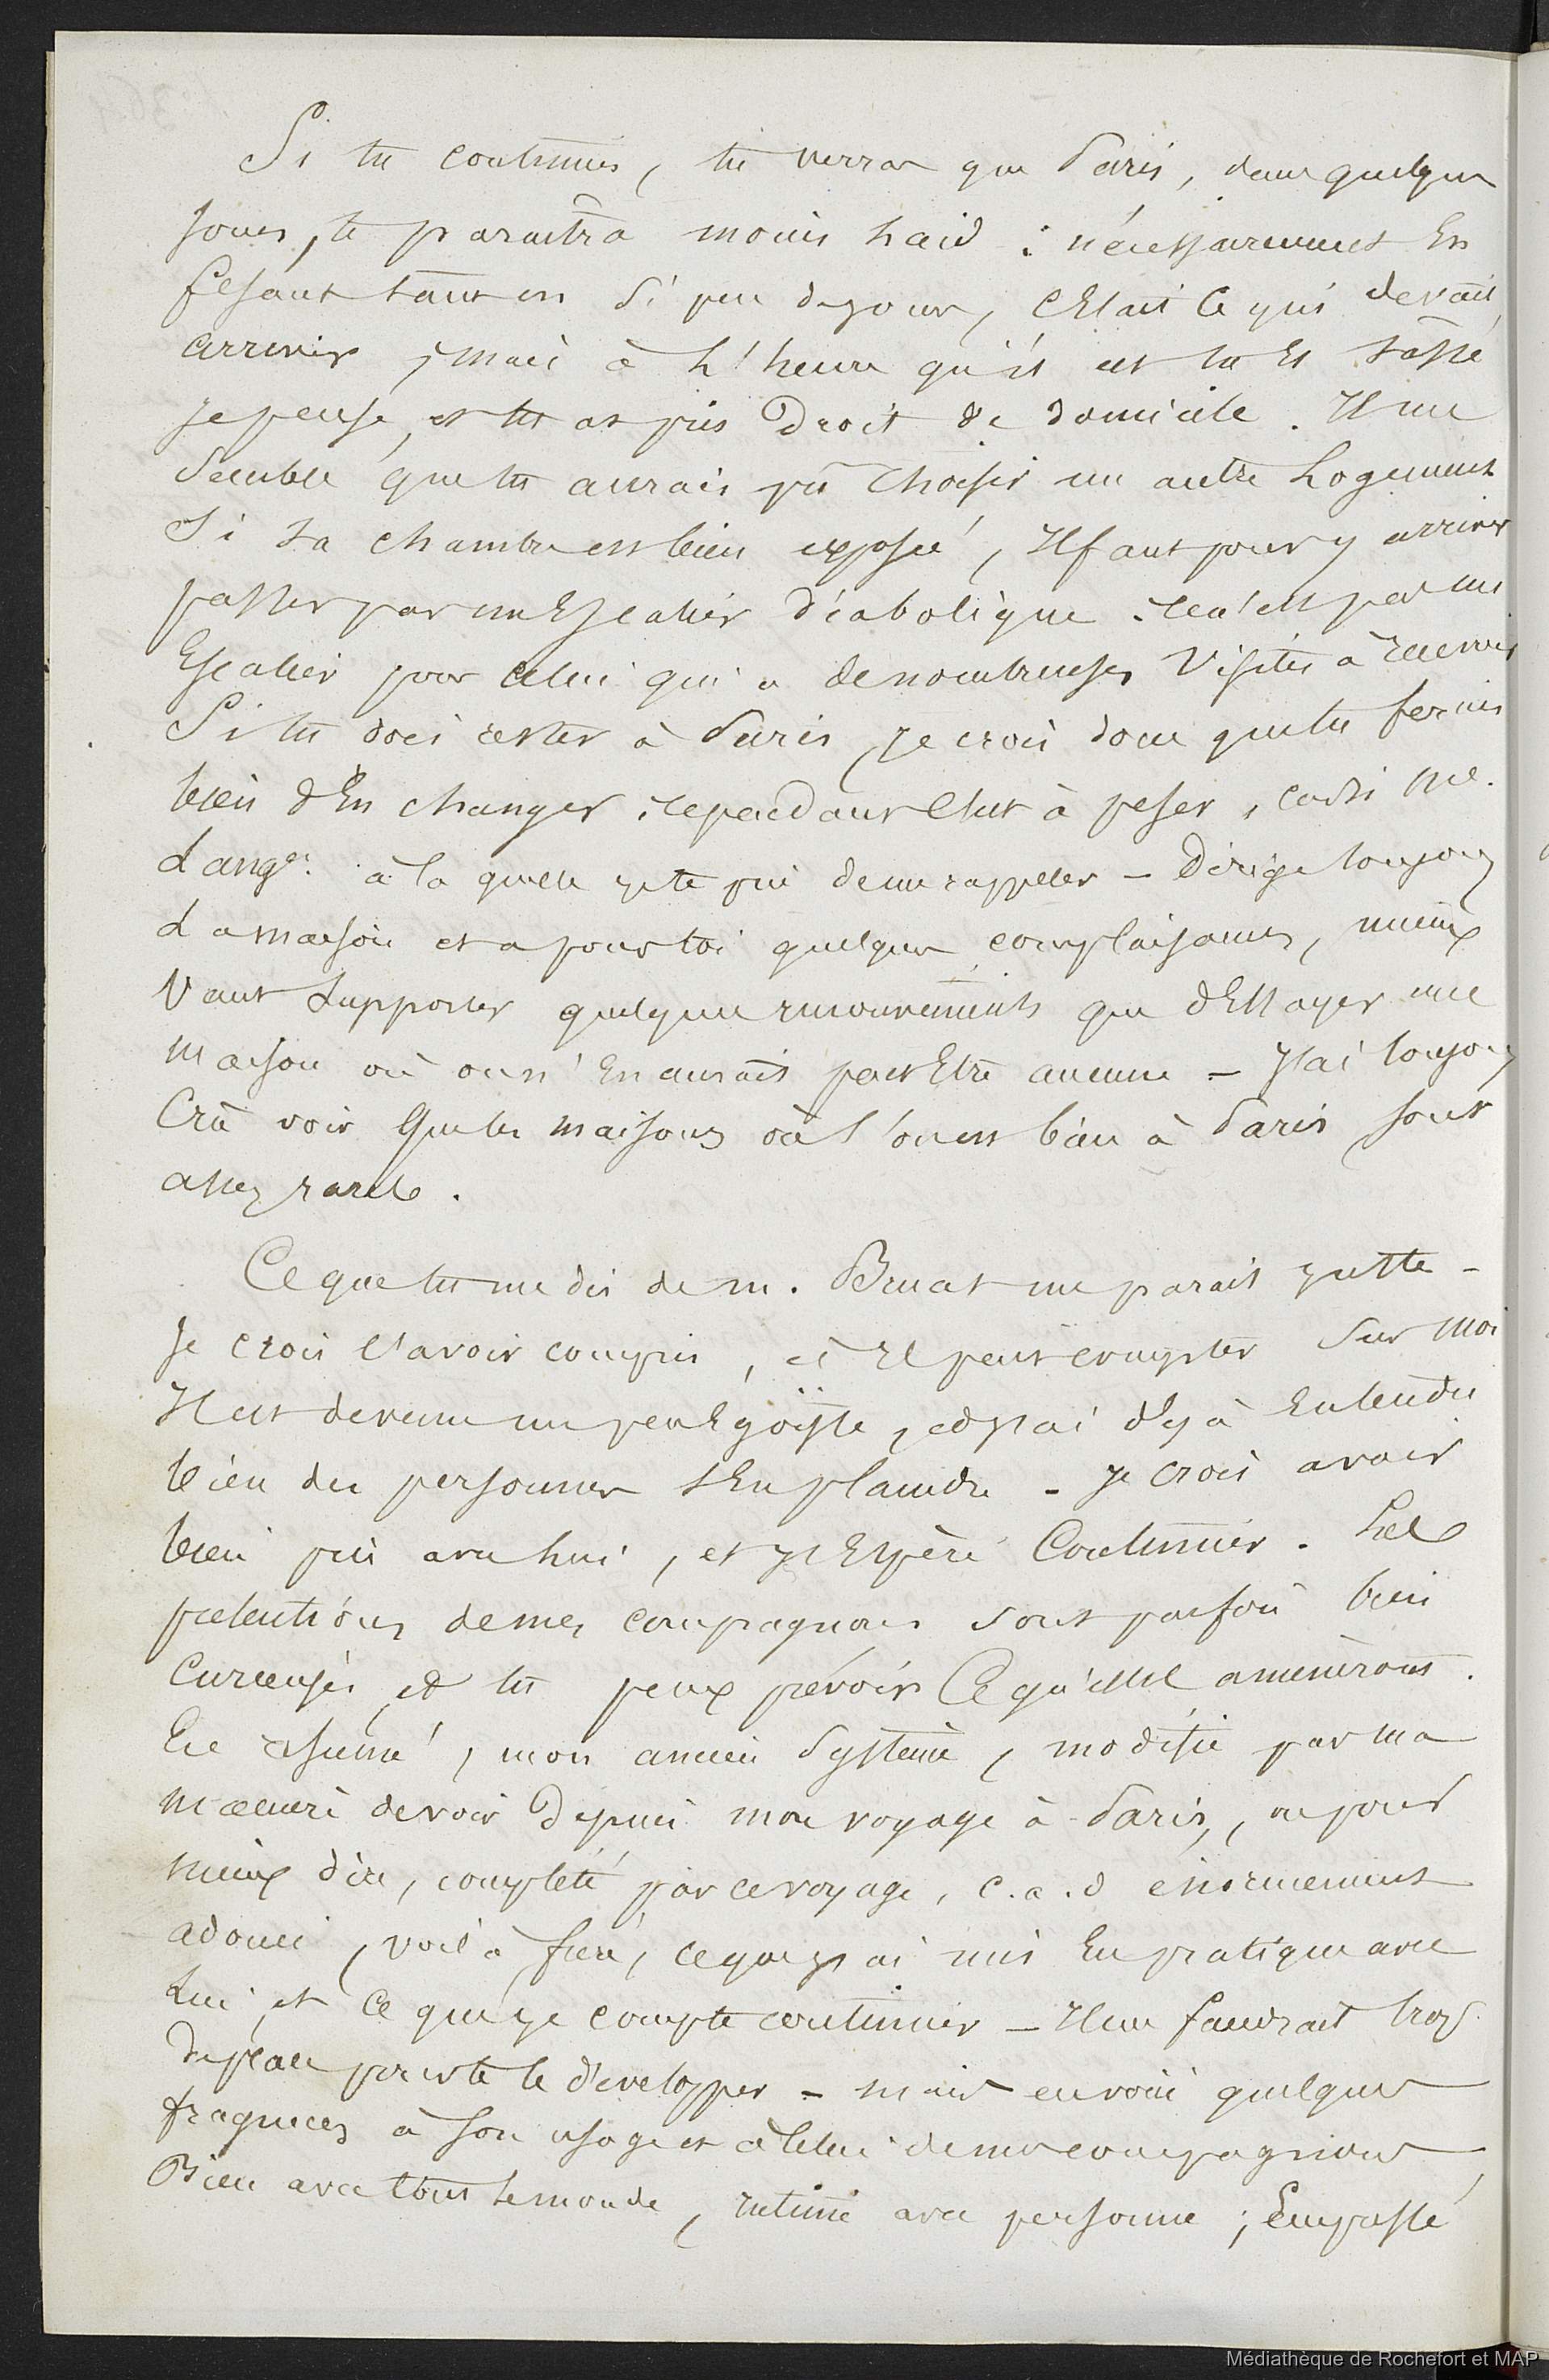 Si tu continues, tu verras que Paris, dans quelques
jours, te paraîtra moins laid ; nécessairement En
fesant tant en si peu de jours, c'Etait ce qui devait
arriver ; mais à l'heure qu'il est tu Es tassé
je pense, et tu as pris Droit de domicile. Il me
Semble que tu aurais pû choisir un autre Logement
Si ta chambre est bien exposée, Il faut pour y arriver
passer par un Escalier diabolique. Ce n'est pas un
Escalier pour celui qui a de nombreuses visites à recevoir
Si tu dois rester à Paris, je crois donc que tu ferais
bien d'En changer, cependant c'est à peser, car si Me.
Lang. à la quelle je te prie de me rappeler - Dirige toujours
La maison et a pour toi quelques complaisances, mieux
Vaut Supporter quelques que d'Essayer une
maison où on n'En aurait peut Etre aucune - J'ai toujours
Crû voir Que les maisons où l'on est bien à Paris sont
assez rares.
Ce que tu me dis de m. Bruat me parait juste -
Je crois l'avoir compris, et Il peut compter Sur moi
Il est devenu un peu Egoïste, et j'ai déjà Entendu
bien des personnes s'En plaindre - je crois avoir
bien pris avec lui, et j'Espère Continuer. Les
prétentions de mes compagnons sont parfois bien
Curieuses, et tu peux prévoir Ce qu'elles amèneront.
En résumé, mon ancien Système, modifié par ma
manière de voir Depuis mon voyage à Paris, ou pour
mieux dire, complété par ce voyage, c.a.d énormément
adouci, voilà frère, ce que j'ai mis En pratique avec
Lui, et ce que je compte continuer - Il me faudrait trop
de place pour te le développer - mais en voici quelques
fragmens à son usage et à celui de mes compagnons
Bien avec tout le monde, intime avec personne ; Empressé